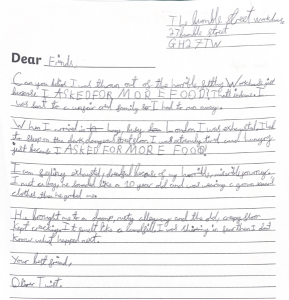 The humble street workhouse,
27 humble street
GH2 7TW
Dear Friends,
Can you believe I was thrown out of the horrible, Workhouse just
because I ASKED FOR MORE FOOD! That's when I
was sent to a family so I had to run away.
When I arrived in busy, London I was exhausted. I had
to sleep on the dark, dangerous I was extremely tired and hungry
just because I ASKED FOR MORE FOOD!
I am feeling exhausted, because of my horrible, miserable journey.
I met a boy, he looked like a 10 year old and was wearing a grown
clothes then he me.
He brought me to a damp, alleyway and the old, creepy floor
kept creaking. It smelt like a landfill. I was shivering in fear then I don't
know what happened next.
Your best friend,
Oliver Twist.